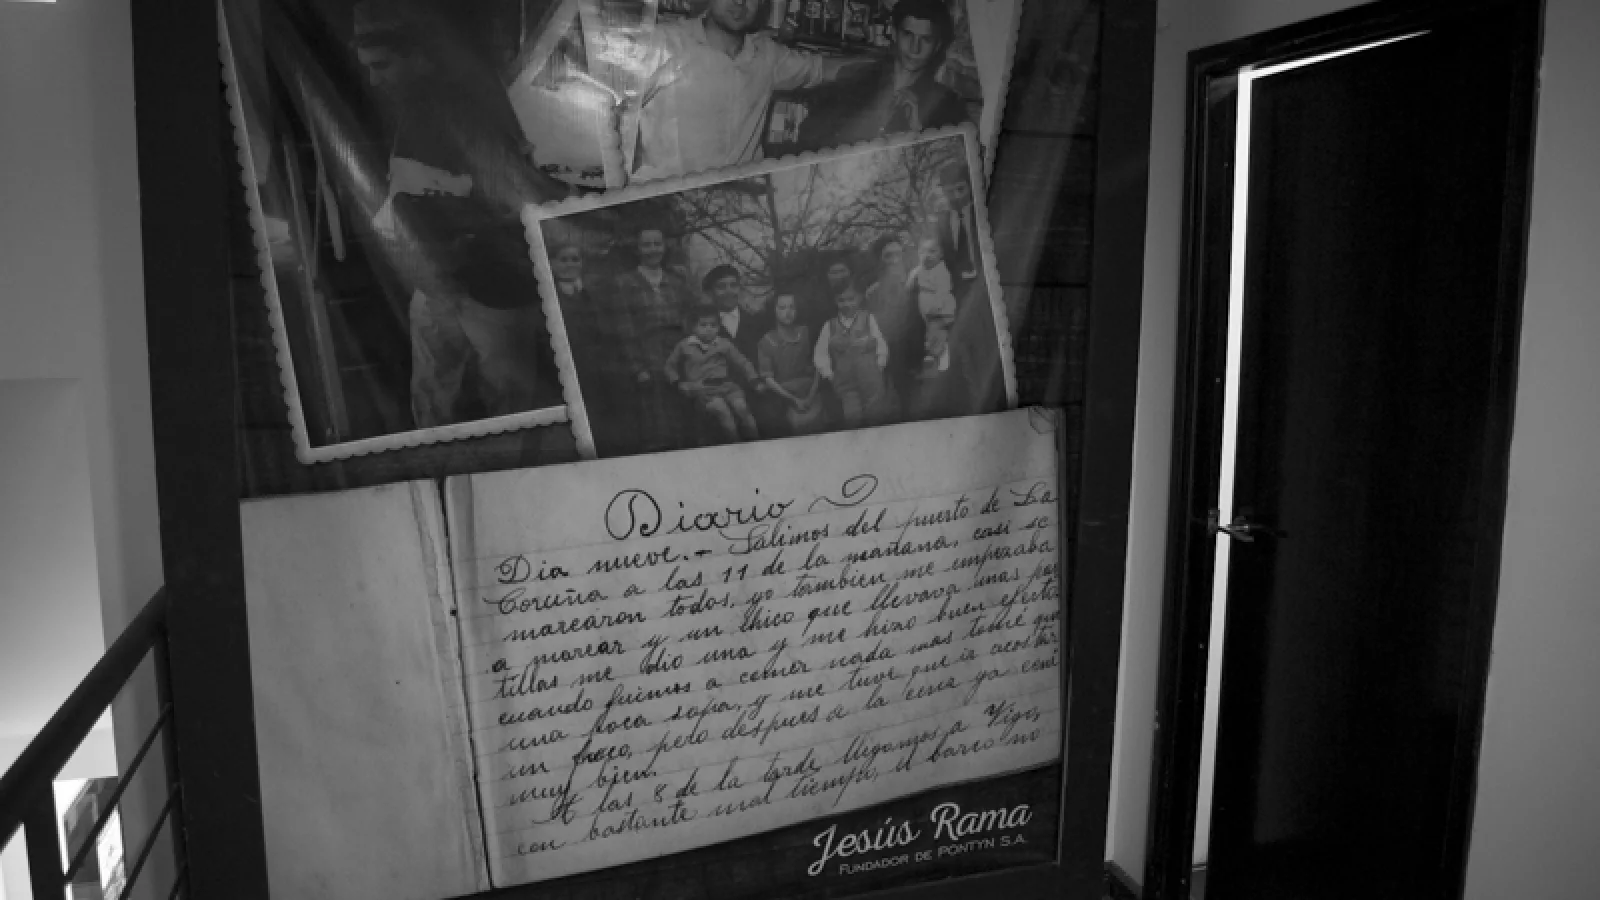 Diario
Dia nueve.- Salimos del puerto de La
Coruña a las 11 de la mañana, casi se
marearon todos, yo tambien me empezaba
a marear y un chico que llevava unas pas
tillas me dio una y me hizo buen efecto
cuando fuimos a comer nada mas tomé que
una poca sopa, y me tuve que ir acostar
un poco, pero despues a la cena ya cené
muy bien.
A las 8 de la tarde llegamos a Vigo,
con bastante mal tiempo, el barco no
Jesús Rama
FUNDADOR DE PONTYN S.A.